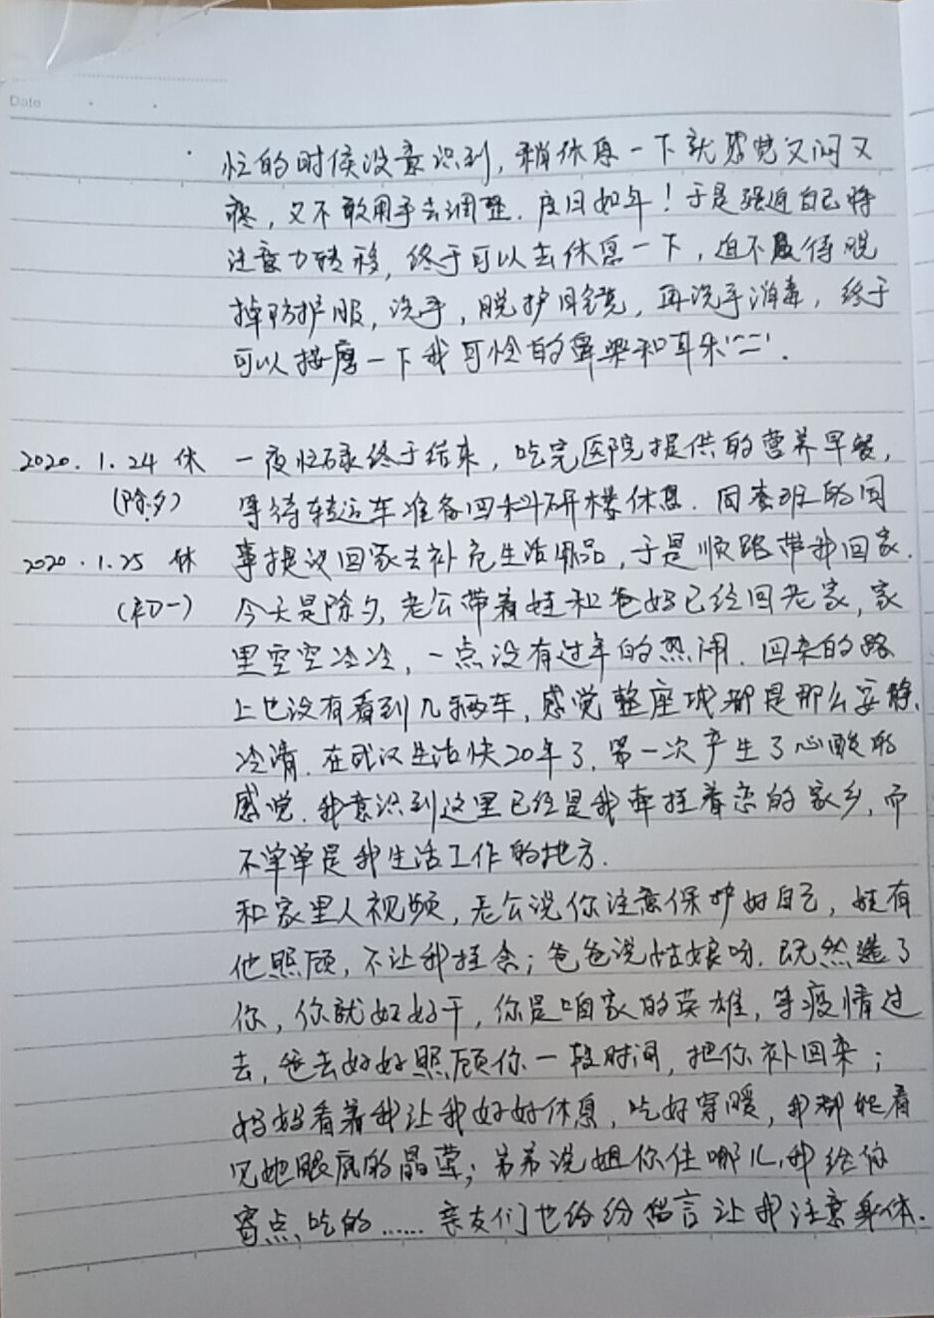 Date
忙的时候没意识到，稍休息一下就感觉又闷又
疼，又不敢用手去调整．度日如年！于是强迫自己将
注意力转移，终于可以去休息一下，迫不及待脱
掉防护服，洗手，脱护目镜，再洗手消毒，终于
可以按摩一下我可怜的鼻梁和耳朵
2020．1．24 休 一夜忙碌终于结束，吃完医院提供的营养早餐，
（除夕） 等待转运车准备回科研楼休息．同查班的同
2020．1．25 休 事提议回家去补充生活用品，于是顺路带我回家．
（初一） 今天是除夕，老公带着娃和爸妈已经回老家，家
里空空冷冷，一点没有过年的热闹．回来的路
上也没有看到几辆车，感觉整座城都是那么安静、
冷清．在武汉生活快20年了，第一次产生了心酸的
感觉．我意识到这里已经是我牵挂着恋的家乡，而
不单单是我生活工作的地方．
和家里人视频，老公说你注意保护好自己，娃有
他照顾，不让我挂念；爸爸说姑娘呀．既然选了
你，你就好好干，你是咱家的英雄，等疫情过
去，爸去好好照顾你一段时间，把你补回来；
妈妈看着我让我好好休息，吃好穿暖，我都能看
见她眼底的晶莹；弟弟说姐你住哪儿，我给你
寄点吃的……亲友们也纷纷留言让我注意身体．